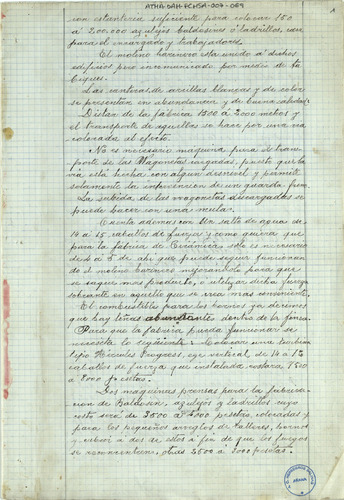 ATHA-DAH-ECHSA-007-069
con estanteria suficiente para colocar 150
á 200.000 azulejos baldosines ó ladrillos, casa
para el encargado y trabajadores.
El molino harinero esta unido a dichos
edificios pero incomunicado por medio de ta
biques.
Las canteras de arcillas blancas y de color
se presentan en abundancia y de buena calidad.
Distan de la fabrica 1500 á 2000 metros y
el transporte de aquellas se hace por una via
colocada al efecto.
No es necesario maquina para el trans-
porte de las Wagonetas cargadas, puesto que la
via está hecha con algun desnivel y permite
solamente la intervencion de un guarda freno.
La subida de las wagonetas descargadas se
puede hacer con una mula.
Cuenta ademas con un salto de aguas de
14 á 15 caballos de fuerza y como quiera que
para la fabrica de Cerámica solo es necesario
de 4 á 5 de ahi que puede seguir funcionan
do el molino harinero mejorandolo para que
se saque mas producto, ó utilizar dicha fuerza
sobrante en aquello que se crea mas conveniente.
El combustible para los hornos ya decimos
que hay leñas abundante dentro de la finca.
Para que la fabrica pueda funcionar se
necesita lo siguiente: Colocar una turbina
tipo Hércules Progress, eje vertical, de 14 á 15
caballos de fuerza que instalada costara 7500
á 8000 pesetas.
Dos maquinas prensas para la fabrica-
cion de Baldosin, azulejos y ladrillos cuyo
costo será de 3500 á 4000 pesetas, colocadas y
para los pequeños arreglos de talleres, hornos
y cubrir á dos de estos á fin de que los fuegos
se reconcentren, otras 2500 á 3000 pesetas.